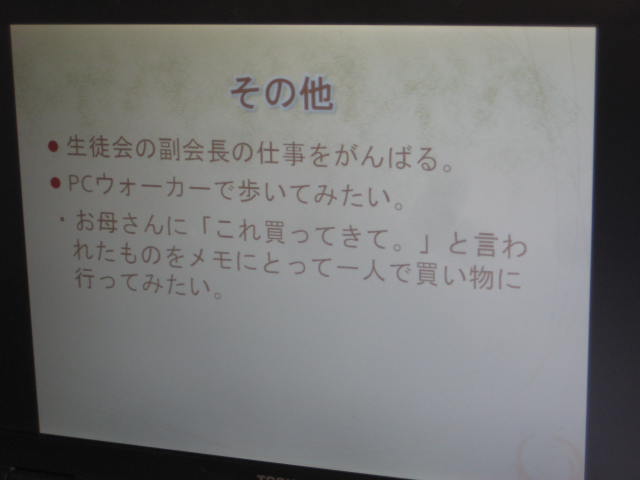 その他
● 生徒会の副会長の仕事をがんばる。
● PCウォーカーで歩いてみたい。
・ お母さんに「これ買ってきて。」と言わ
れたものをメモにとって一人で買い物に
行ってみたい。